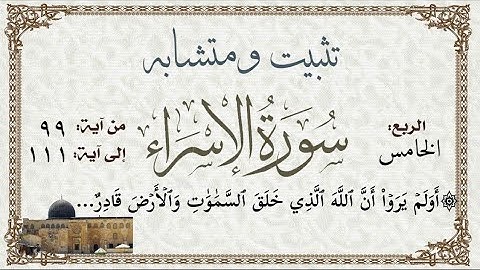 تثبيت ومتشابه
سُورَةُ الإِسْرَاء
الربع:
الخامس
من آية: ٩٩
إلى آية: ١١١
۞أَوَلَمْ يَرَوْا۟ أَنَّ ٱللَّهَ ٱلَّذِي خَلَقَ ٱلسَّمَٰوَٰتِ وَٱلْأَرْضَ قَادِرٌ...